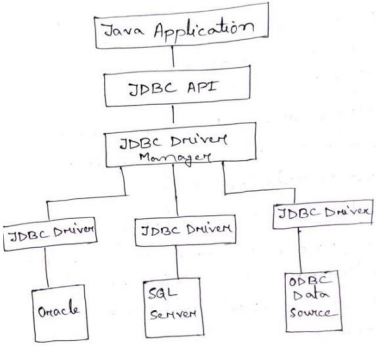 Java Application
JDBC API
JDBC Driver
Manager
JDBC Driver
JDBC Driver
JDBC Driver
Oracle
SQL
Server
ODBC
Data
Source